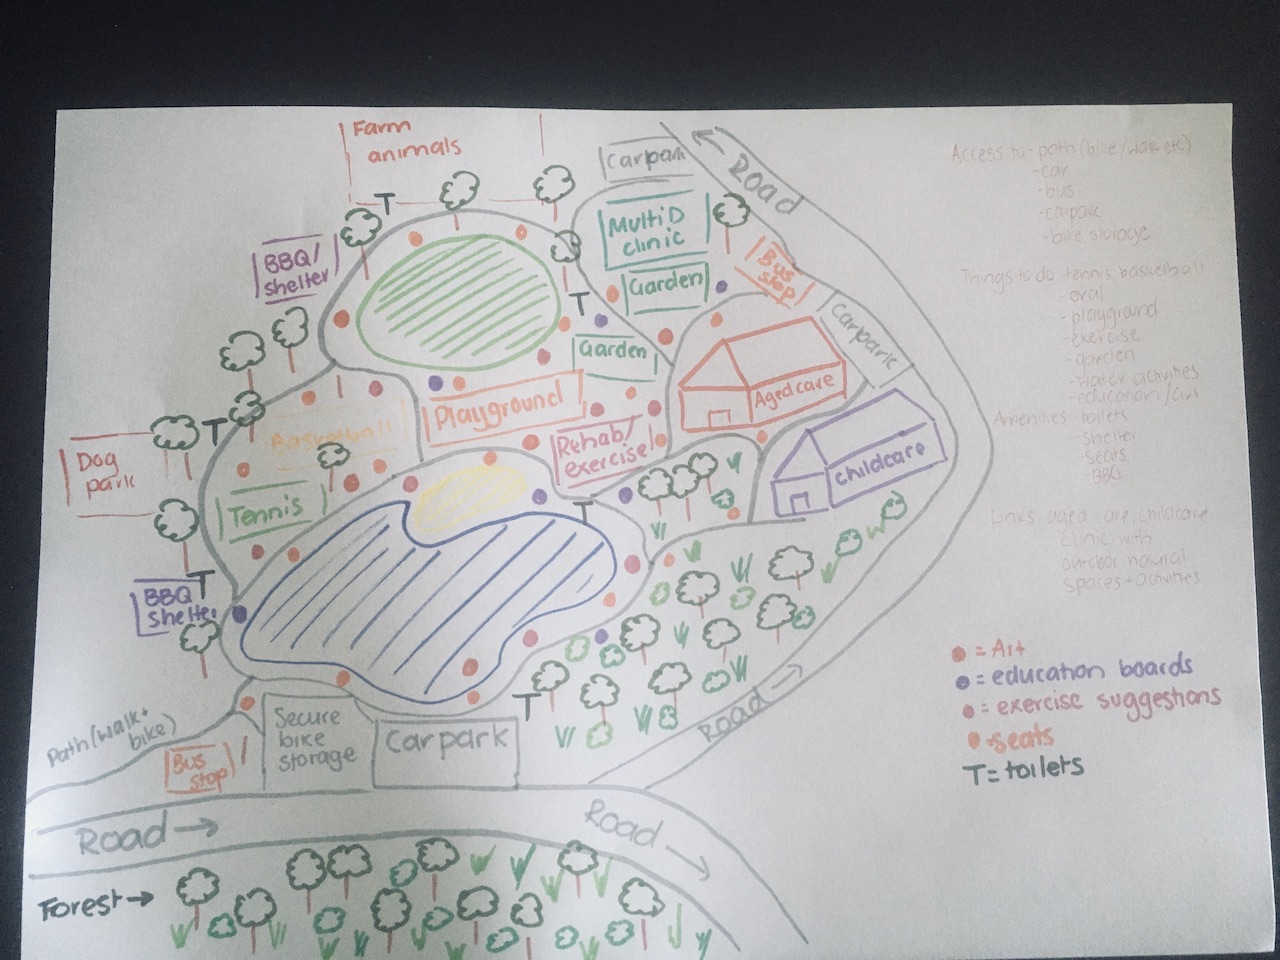 Farm
animals
Carpark
ROAD
MultiD
clinic
Garden
Bus
stop
Carpark
BBQ/
shelter
T
T
Garden
Aged care
Playground
Basketball
Rehab/
exercise
childcare
T
Dog
park
Tennis
T
T
BBQ
shelter
T
Road
Path (walk+
bike)
Bus
stop
Secure
bike
storage
Carpark
Road
Road
Forest
Access to - path (bike/walk etc)
- car
- bus
- carpark
- bike storage
Things to do tennis basketball
- oval
- playground
- exercise
- garden
- water activities
- education/
Amenities toilets
shelter
seats
BBQ
Links aged care, childcare
clinic with
outdoor natural
spaces + activities
= Art
= education boards
= exercise suggestions
- seats
T = toilets